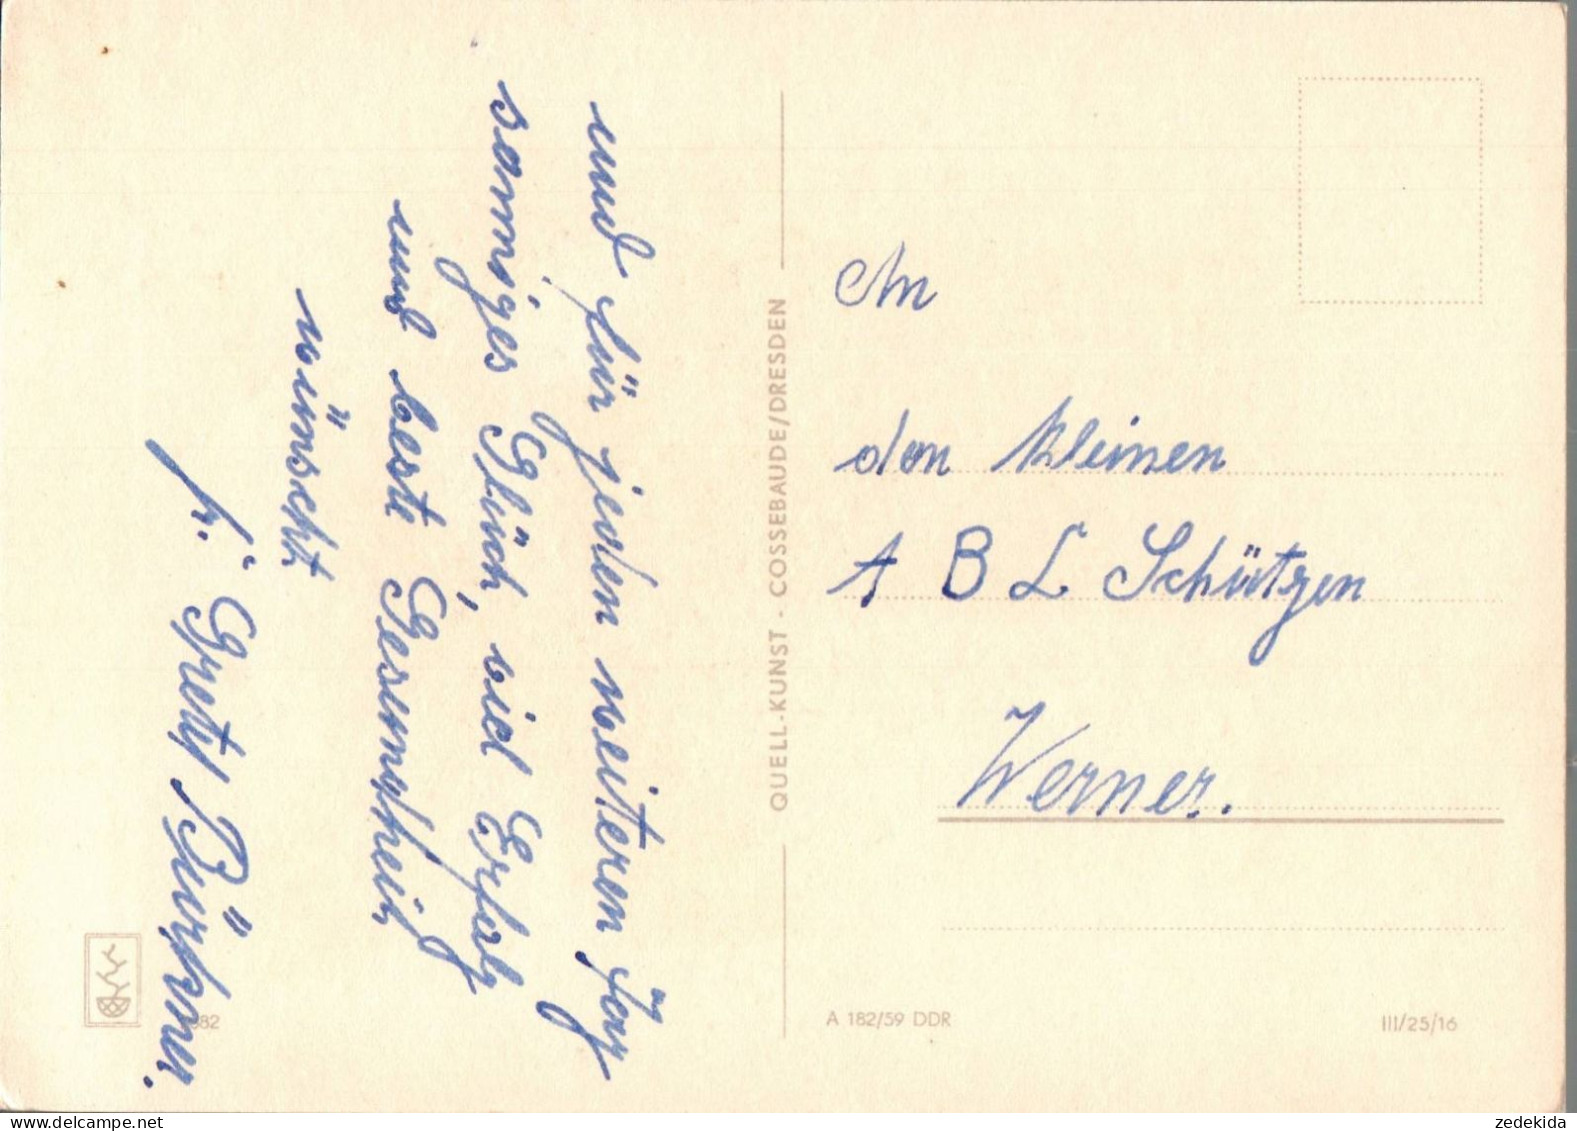 und für jeden weiteren Tag
sonniges Glück, viel Erfolg
und beste Gesundheit
wünscht
fr. Gretl
QUELL-KUNST · COSSEBAUDE/DRESDEN
An
den kleinen
A B C Schützen
Werner.
A 182/59 DDR
III/25/16
zedekida